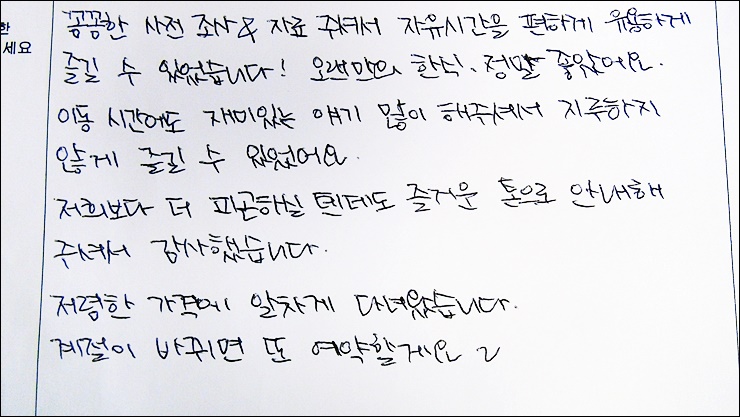 한
세요
꼼꼼한 사전 조사 & 자료 주셔서 자유시간을 편하게 유용하게
즐길 수 있었습니다! 오랜만의 한식, 정말 좋았어요.
이동 시간에도 재미있는 얘기 많이 해주셔서 지루하지
않게 즐길 수 있었어요.
저희보다 더 피곤하실 텐데도 즐거운 톤으로 안내해
주셔서 감사했습니다.
저렴한 가격에 알차게 다녀왔습니다.
계절이 바뀌면 또 예약할게요 ~